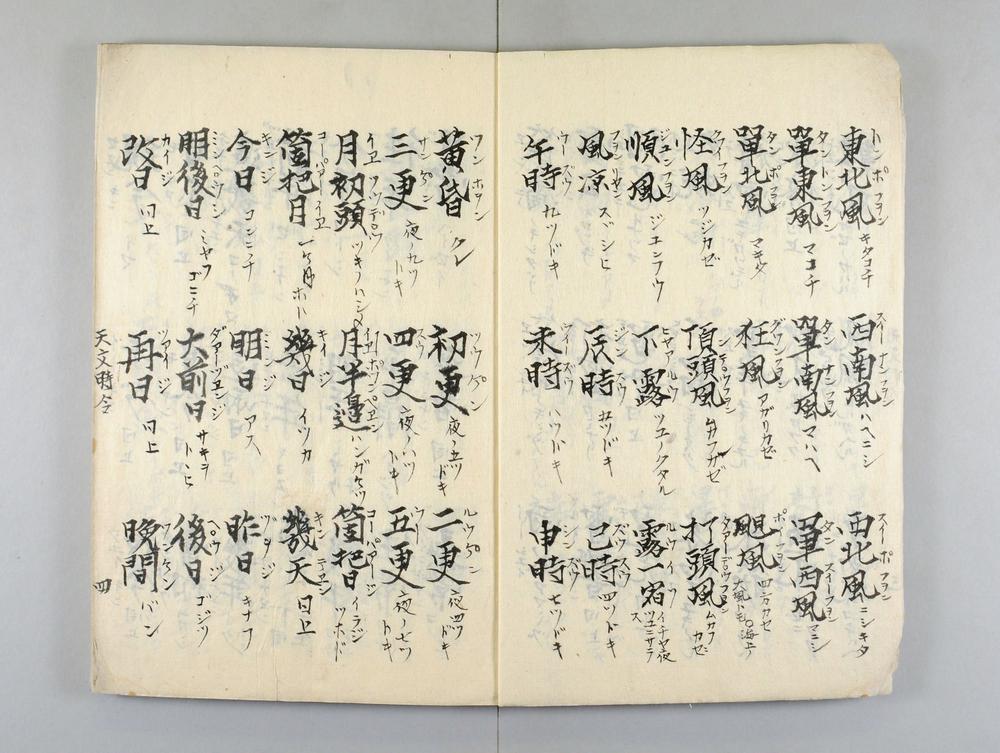 東北風 トンポフヨン キタコチ
西南風 スイーナンフヨン ハヘニシ
西北風 スイーポフヨン ニシキタ
單東風 タントンフヨン マコチ
單南風 タンナンフヨン マハヘ
單西風 タンスイーフヨン マニシ
單北風 タンポフヨン マキタ
狂風 グワンフヨン アガリカゼ
颶風 四方カゼ 大風トモ海上
怪風 クワイフヨン ツジカゼ
頂頭風 ムカフカゼ
打頭風 タアデ゚ウフヨン ムカフカゼ
順風 ジユンフヨン ジユンフウ
下露 ヒヤアルウ ツユノクダル
露一宿 ルウイ イチヤ夜ツユニサラス
風凉 フヨンリヤン スヾシヒ
辰時 ジンズウ 五ツドキ
巳時 ズウズウ 四ツドキ
午時 ウーズウ 九ツドキ
未時 ウイーズウ 八ツドキ
申時 シンズウ 七ツドキ
黄昏 ワンホヲン クレ
初更 ツウゲン 夜ノ五ツドキ
二更 ルウゲン 夜四ツドキ
三更 サンゲン 夜ノ九ツトキ
四更 スウ 夜ノ八ツトキ
五更 ウー 夜ノ七ツトキ
月初頭 イヱツウデ゚ウ ツキノハシメ
月半邊 ハンガツ
箇把日 コーパアジ イラジツホド
箇把月 コーパアイヱ 一ケ月ホト
幾日 キイジ イツカ
幾天 キイテヱン 日上
今日 キンジ コンニチ
明日 ミンジ アス
昨日 ヅヲジ キナフ
明後日 ミンペ゚ウジ ミヤウゴニチ
大前日 ダアーヅヱンジ サキヲトヽヒ
後日 ペ゚ウジ ゴジツ
改日 カイジ 同上
再日 ツアイジ 同上
晩間 ワンケン バン
天文時令
四